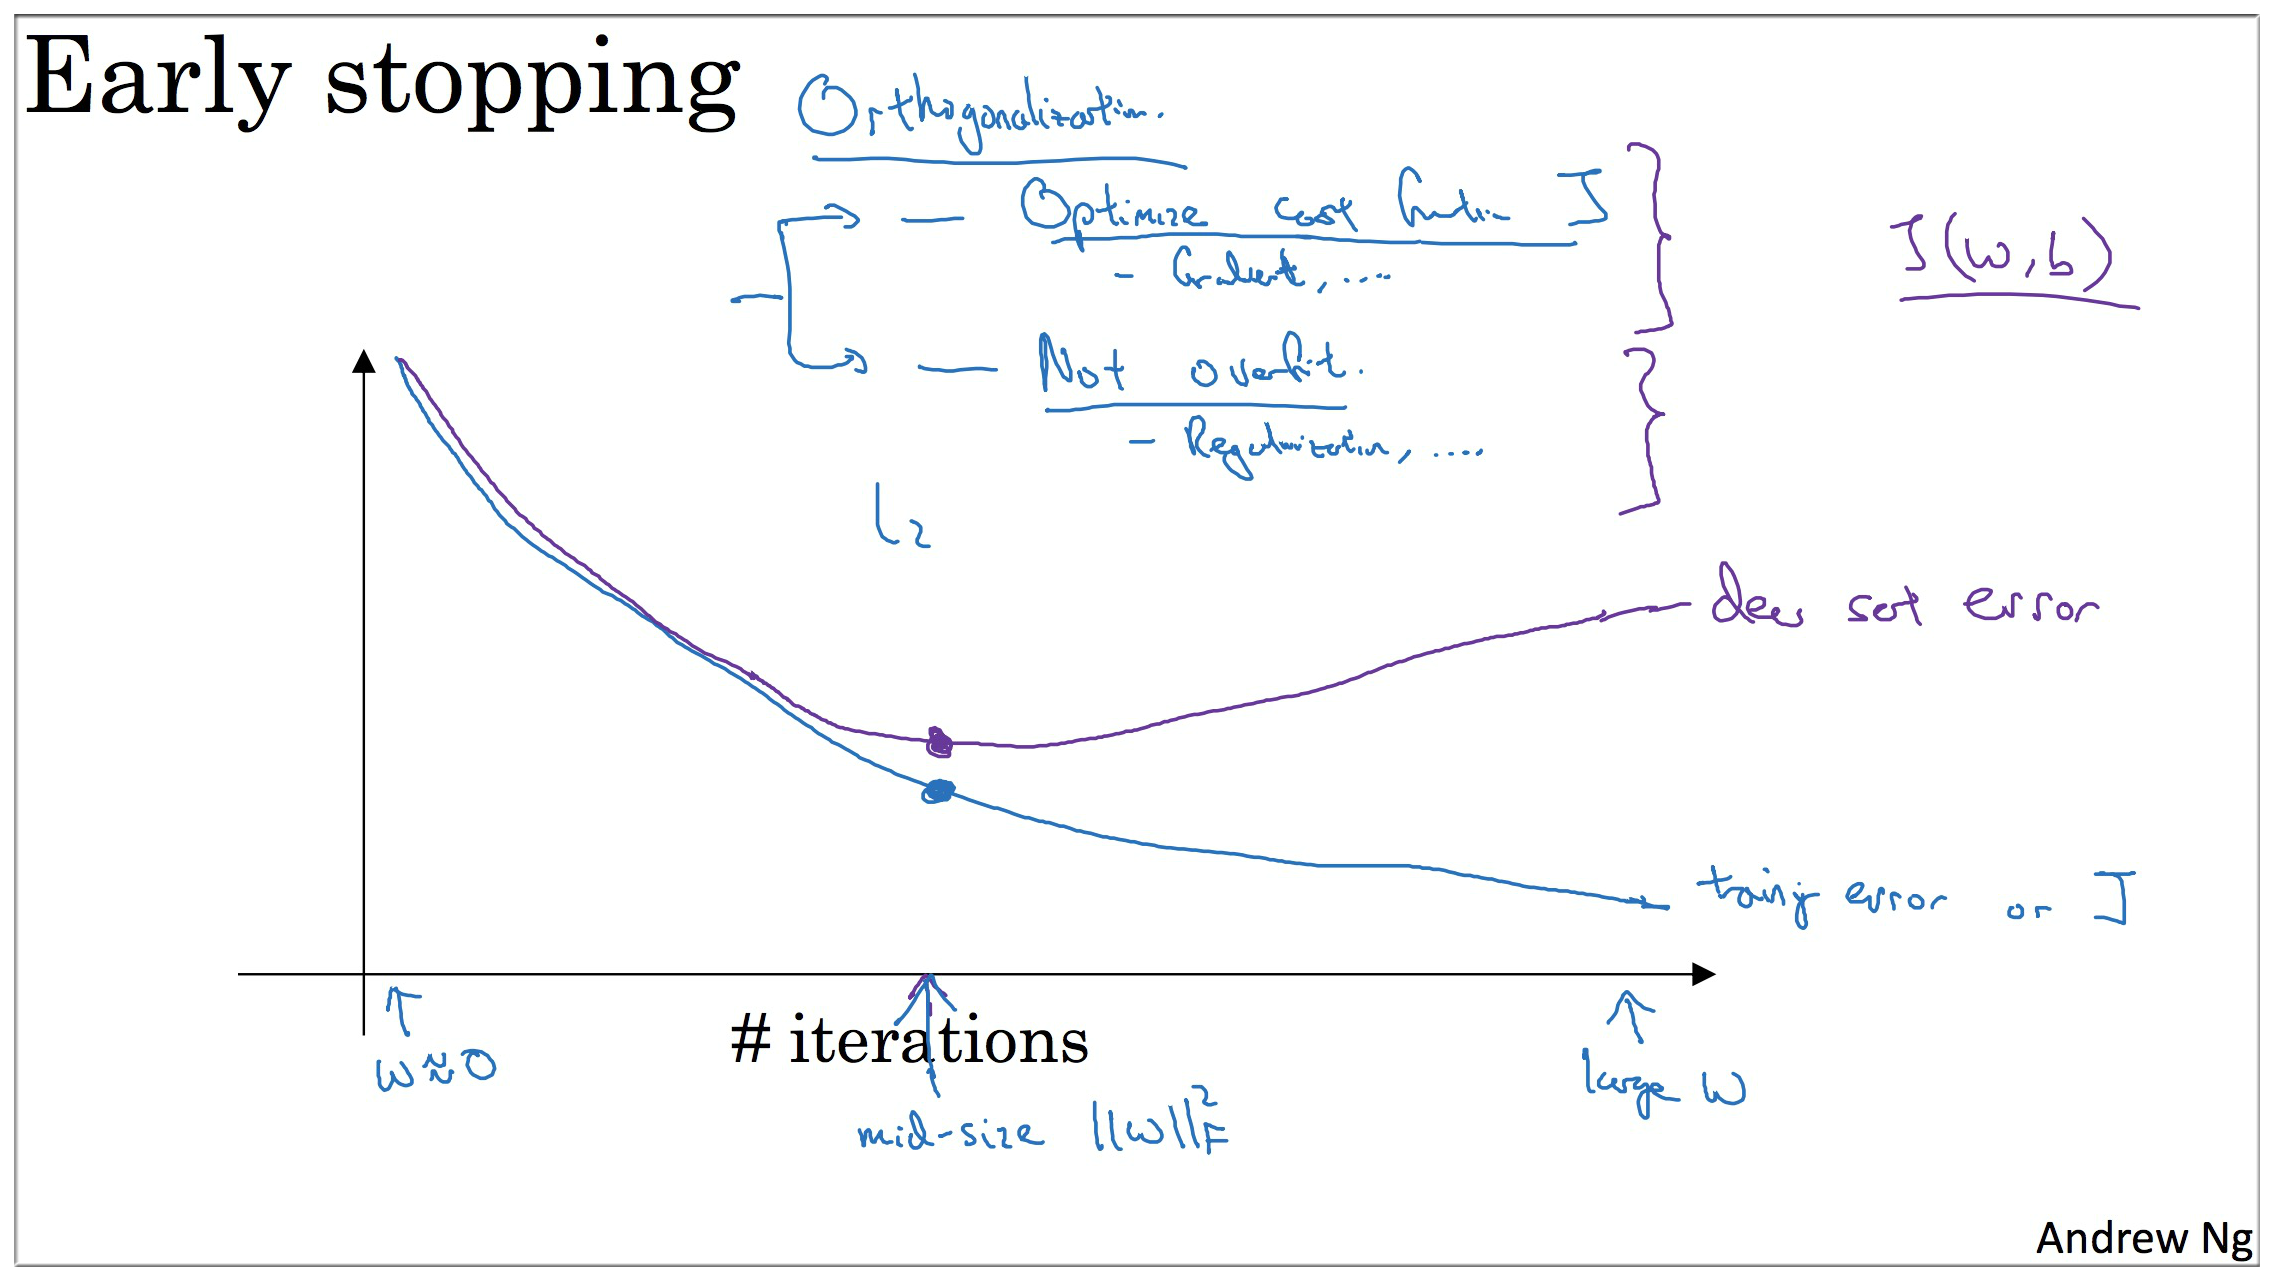 Early stopping
Orthogonalization.
— Optimize cost function J
- Gradient, ....
J(w,b)
— Not overfit.
- Regularization, ....
L2
dev set error
training error or J
# iterations
w≈0
large w
mid-size ||w||²_F
Andrew Ng